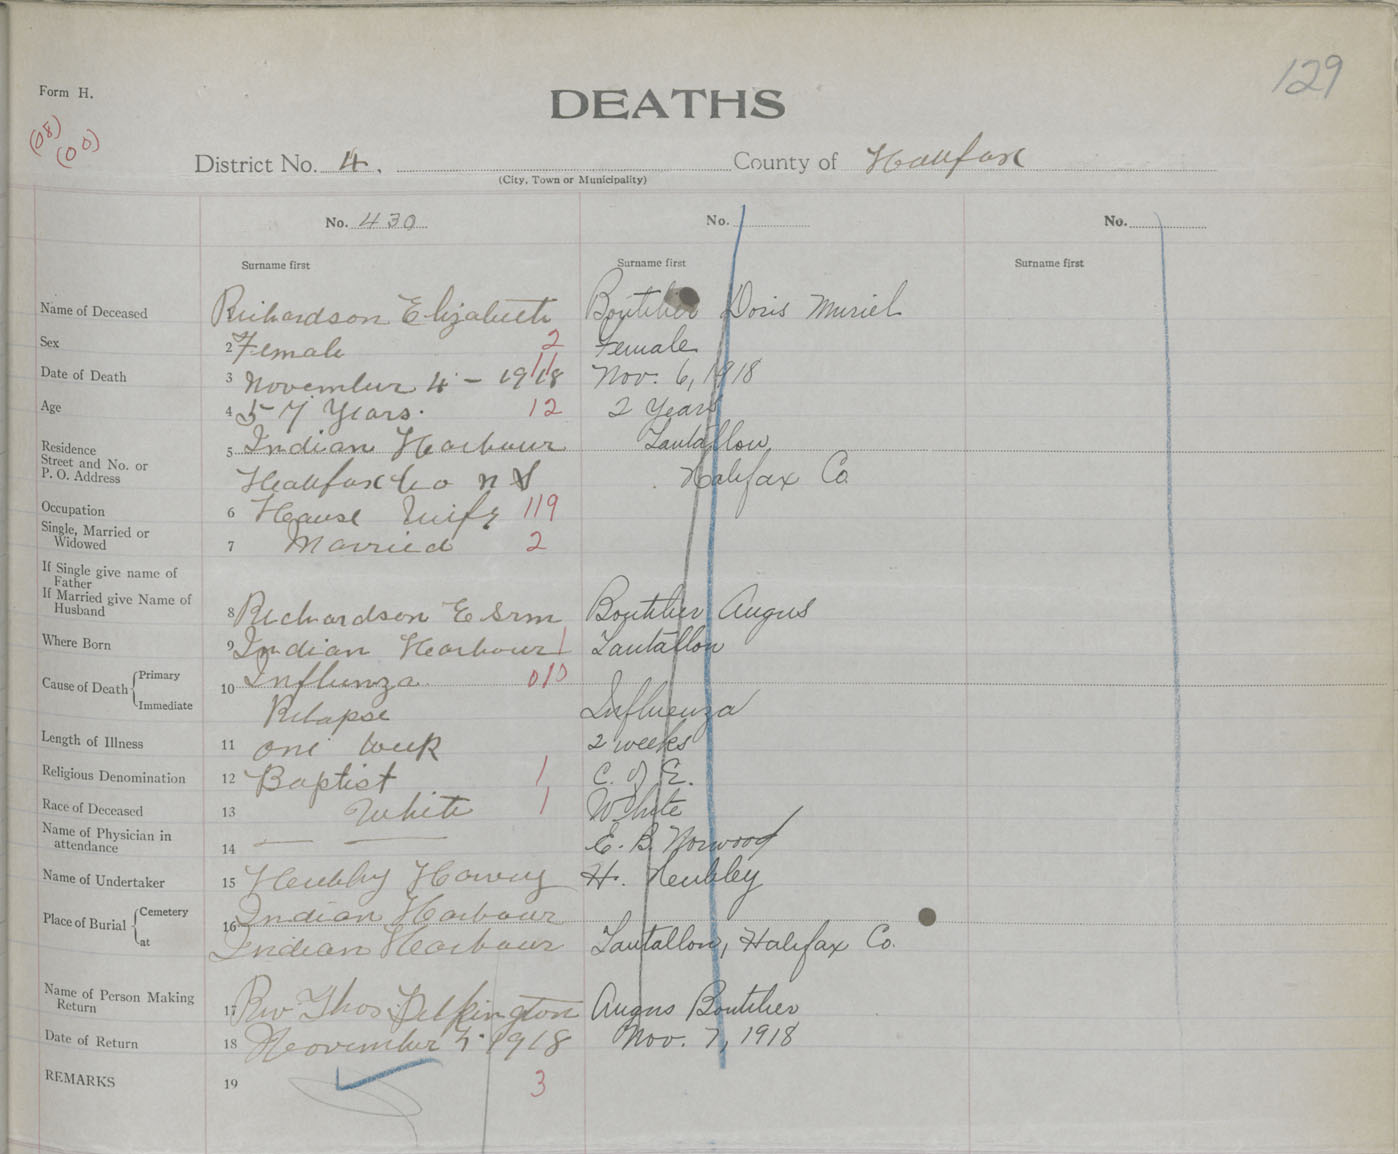 129
Form H.
DEATHS
(08)
(00)
District No. 4. County of Halifax
(City, Town or Municipality)
No. 430 No. No.
Surname first Surname first Surname first
Name of Deceased Richardson Elizabeth Boutilier Doris Muriel
Sex 2 Female 2 Female
Date of Death 3 November 4 - 1918 11 Nov. 6, 1918
Age 4 57 Years. 12 2 Years
Residence 5 Indian Harbour Tantallon
Street and No. or
P. O. Address Halifax Co N S Halifax Co
Occupation 6 House Wife 119
Single, Married or
Widowed 7 Married 2
If Single give name of
Father
If Married give Name of
Husband 8 Richardson Boutilier Angus
Where Born 9 Indian Harbour 1 Tantallon
Cause of Death Primary 10 Influenza 010
Immediate Relapse Influenza
Length of Illness 11 one week 2 weeks
Religious Denomination 12 Baptist 1 C. of E.
Race of Deceased 13 White 1 White
Name of Physician in
attendance 14 — — E. B. Norwood
Name of Undertaker 15 Heubley H. Heubley
Place of Burial Cemetery 16 Indian Harbour
at Indian Harbour Tantallon, Halifax Co.
Name of Person Making
Return 17 Rev Thos Pilkington Angus Boutilier
Date of Return 18 November 1918 Nov. 7, 1918
REMARKS 19 3